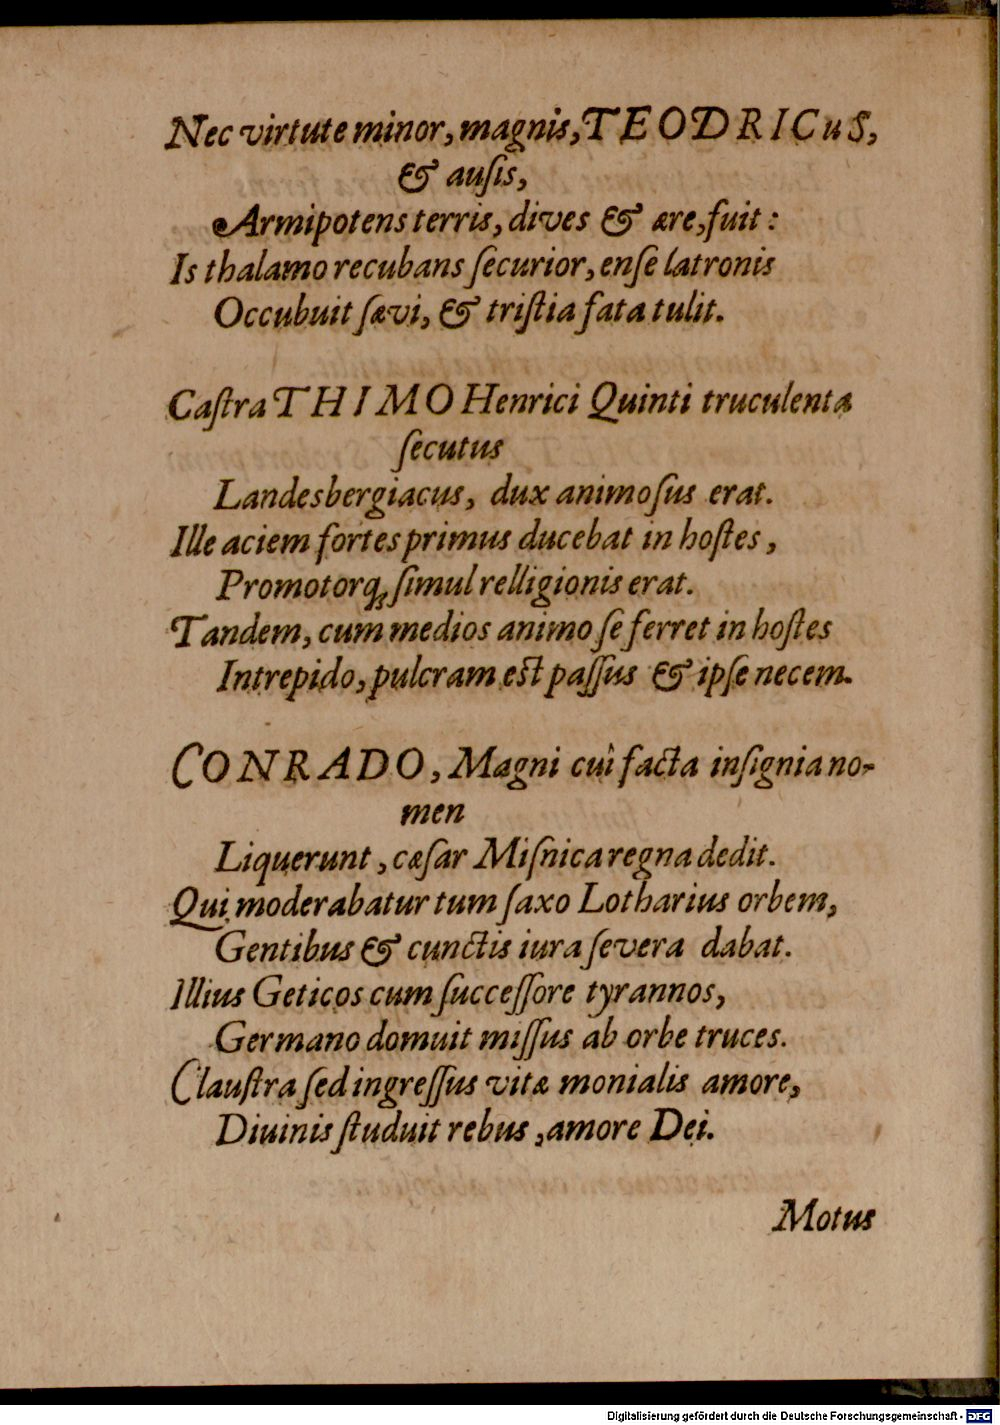 Nec virtute minor, magnis, TEODRICuS,
& auſis,
Armipotens terris, dives & ære, fuit:
Is thalamo recubans ſecurior, enſe latronis
Occubuit ſævi, & triſtia fata tulit.
Caſtra THIMO Henrici Quinti truculenta
ſecutus
Landesbergiacus, dux animoſus erat.
Ille aciem fortes primus ducebat in hoſtes,
Promotorq́ꝫ ſimul relligionis erat.
Tandem, cum medios animo ſe ferret in hoſtes
Intrepido, pulcram eſt paſſus & ipſe necem.
CONRADO, Magni cuî facta inſignia no-
men
Liquerunt, cæſar Miſnica regna dedit.
Qui moderabatur tum ſaxo Lotharius orbem,
Gentibus & cunctis iura ſevera dabat.
Illius Geticos cum ſucceſſore tyrannos,
Germano domuit miſſus ab orbe truces.
Clauſtra ſed ingreſſus vitæ monialis amore,
Diuinis ſtuduit rebus, amore Dei.
Motus
Digitalisierung gefördert durch die Deutsche Forschungsgemeinschaft - DFG